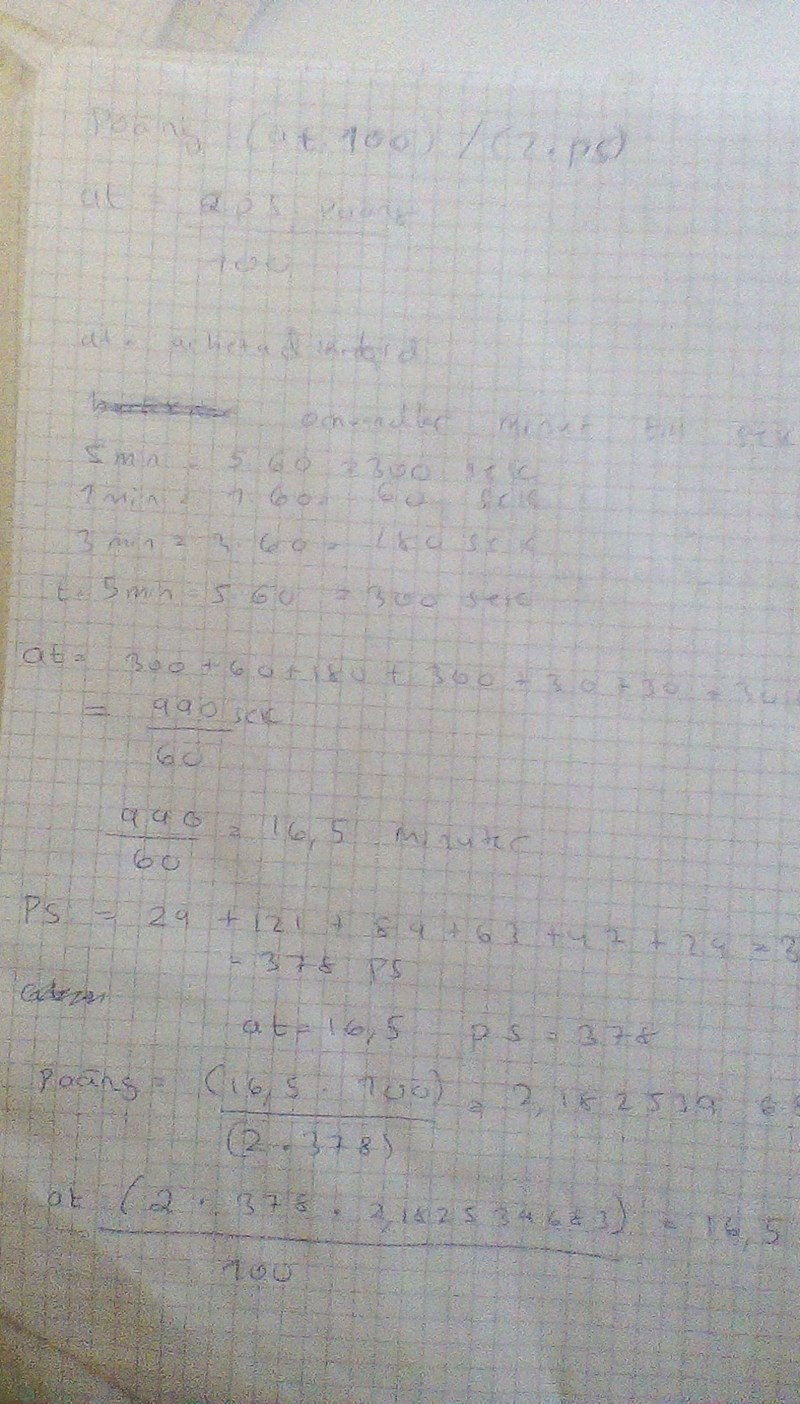 Poäng (at 100) / (2 . ps)
at = 2 ps poäng
100
at =
omvandlar minut till sek
5 min = 5 60 = 300 sek
1 min = 1 60 = 60 sek
3 min = 3 . 60 = 180 sek
5 min = 5 60 = 300 sek
at = 300 + 60 + 180 + 300 + 30 + 30 +
= 990 sek
60
990 = 16,5 minuter
60
PS = 29 + 121 + 89 + 63 + 47 + 29 = 3
= 378 PS
at = 16,5 ps = 378
poäng = (16,5 . 100) = 2,182539 68
(2 . 378)
at (2 . 378 . 2,182539683) = 16,5
100